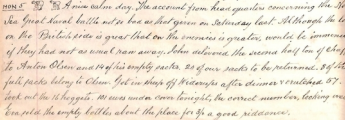 MON 5 A nice calm day. The account from head quarters concerning the
Great Naval battle not so bad as that given on Saturday last. Although the lo
on the British side is great that on the enemies is greater, would be immense
if they had not as usual ran away. John carted the second half ton of chaf
to Anton Olsen and 14 of his empty sacks, 20 of our sacks to be returned. 8 of the
full sacks belong to Olsen. Got in sheep off after dinner & crutched 57.
took out the 16 hoggets. 111 ewes under cover tonight, the correct number, looking
Geo. sold the empty bottles about the place for 8/- a good riddance.